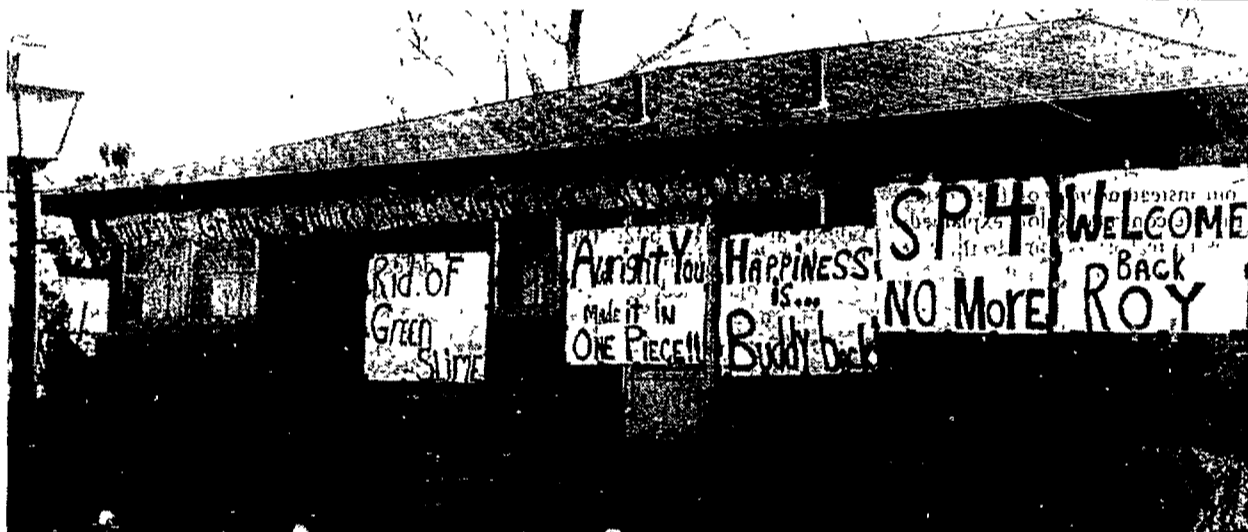 Rid oF
Green
SLIME
Awright You
Made it IN
ONE PIECE!!
HAPPINESS
is...
Buddy back
SP4
NO MoRE
WELCOME
BACK
ROY